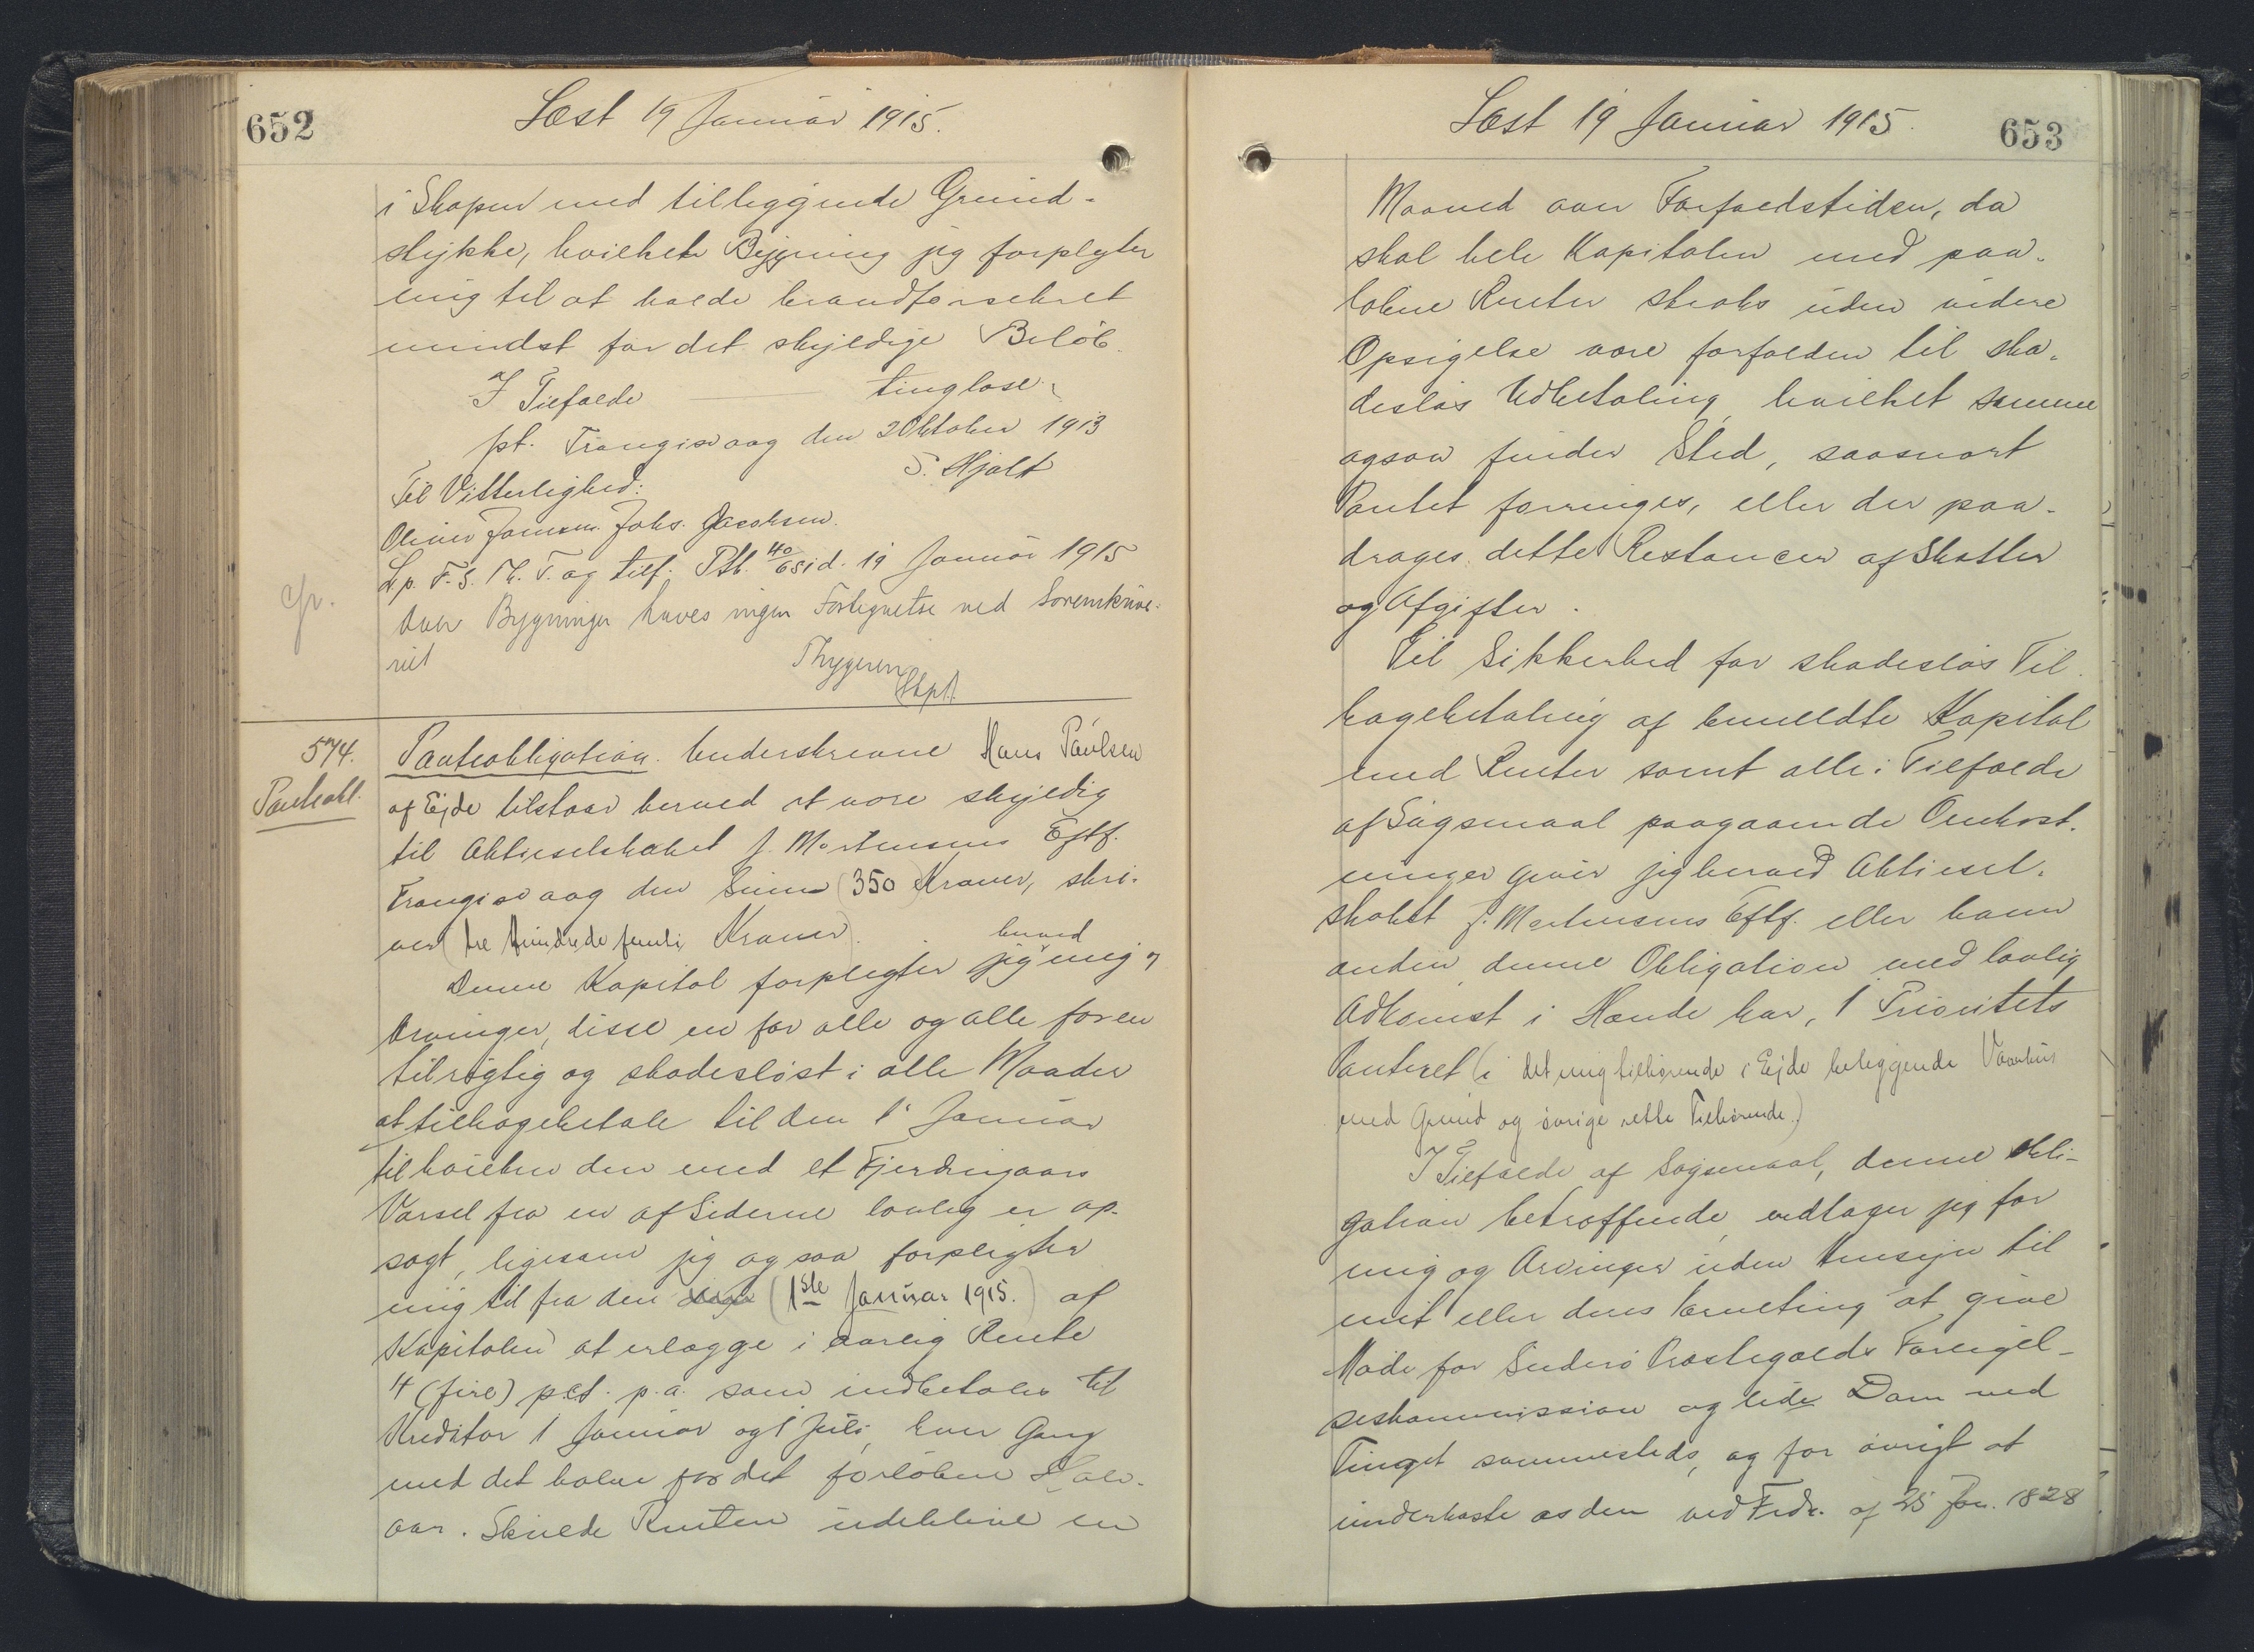 652
Læst 19 Januar 1915.
i Skapen med tilliggende Grund-
stykke, hvilken Bygning jeg forpligter
mig til at holde brandforsikret
mindst for det skyldige Beløb.
I Tilfælde tinglæse.
pt. Trangisvaag den 2 Oktober 1913
S. Hjalt
Til Vitterlighed:
Oliver Jamsen. Johs. Jacobsen.
Lp. F. S. Th. T. og tilf. Ptb. 40/651 d. 19 Januar 1915
Over Bygninger haves ingen Fortegnelse ved Sorenskrive-
riet
Thygesen
Cst.
574.
Panteobl.
Panteobligation. Underskrevne Hans Paulsen
af Ejde tilstaar herved at være skyldig
til Aktieselskabet J. Mortensens Eftf.
Trangisvaag den Summa (350) Kroner, skri-
ver (tre hundrede femti Kroner).
herved
Denne Kapital forpligter jeg mig og
Arvinger, disse en for alle og alle for en
tilrigtig og skadesløst i alle Maader
at tilbagebetale til den 1' Januar
til hvilken den med et Fjerdingaars
Varsel fra en af Siderne lovlig er op-
sagt, ligesom jeg ogsaa forpligter
mig til fra den (1ste Januar 1915.) af
Kapitalen at erlægge i aarlig Rente
4 (fire) pct. p.a. som indbetales til
Kreditor 1 Januar og 1 Juli, hver Gang
med det halve for det forløbne Halv-
aar. Skulde Renten udeblive en
Læst 19 Januar 1915.
653
Maaned over Forfaldstiden, da
skal hele Kapitalen med paa-
løbne Renter straks uden videre
Opsigelse være forfalden til ska-
desløs Udbetaling, hvilket samme
ogsaa finder Sted, saasnart
Pantet forringes, eller der paa-
drages dette Restancer af Skatter
og Afgifter.
Til Sikkerhed for skadesløs Til-
bagebetaling af bemeldte Kapital
med Renter samt alle i Tilfælde
af Søgsmaal paagaaende Omkost-
ninger giver jeg herved Aktiesel-
skabet J. Mortensens Eftf. eller hvem
anden denne Obligation med lovlig
Adkomst i Hænde har, 1 Prioritets
Panteret (i det mig tilhørende i Ejde beliggende Vaanhus
med Grund og øvrige rette Tilhørende.)
I Tilfælde af Søgsmaal, denne Obli-
gation betræffende, vedtager jeg for
mig og Arvinger uden Hensyn til
mit eller deres Værneting at give
Møde for Suderø Præstegjælds Forligel-
seskommission og lide Dom ved
Tinget sammesteds, og for øvrigt at
underkaste os den ved Frdn. af 25 Jan. 1828